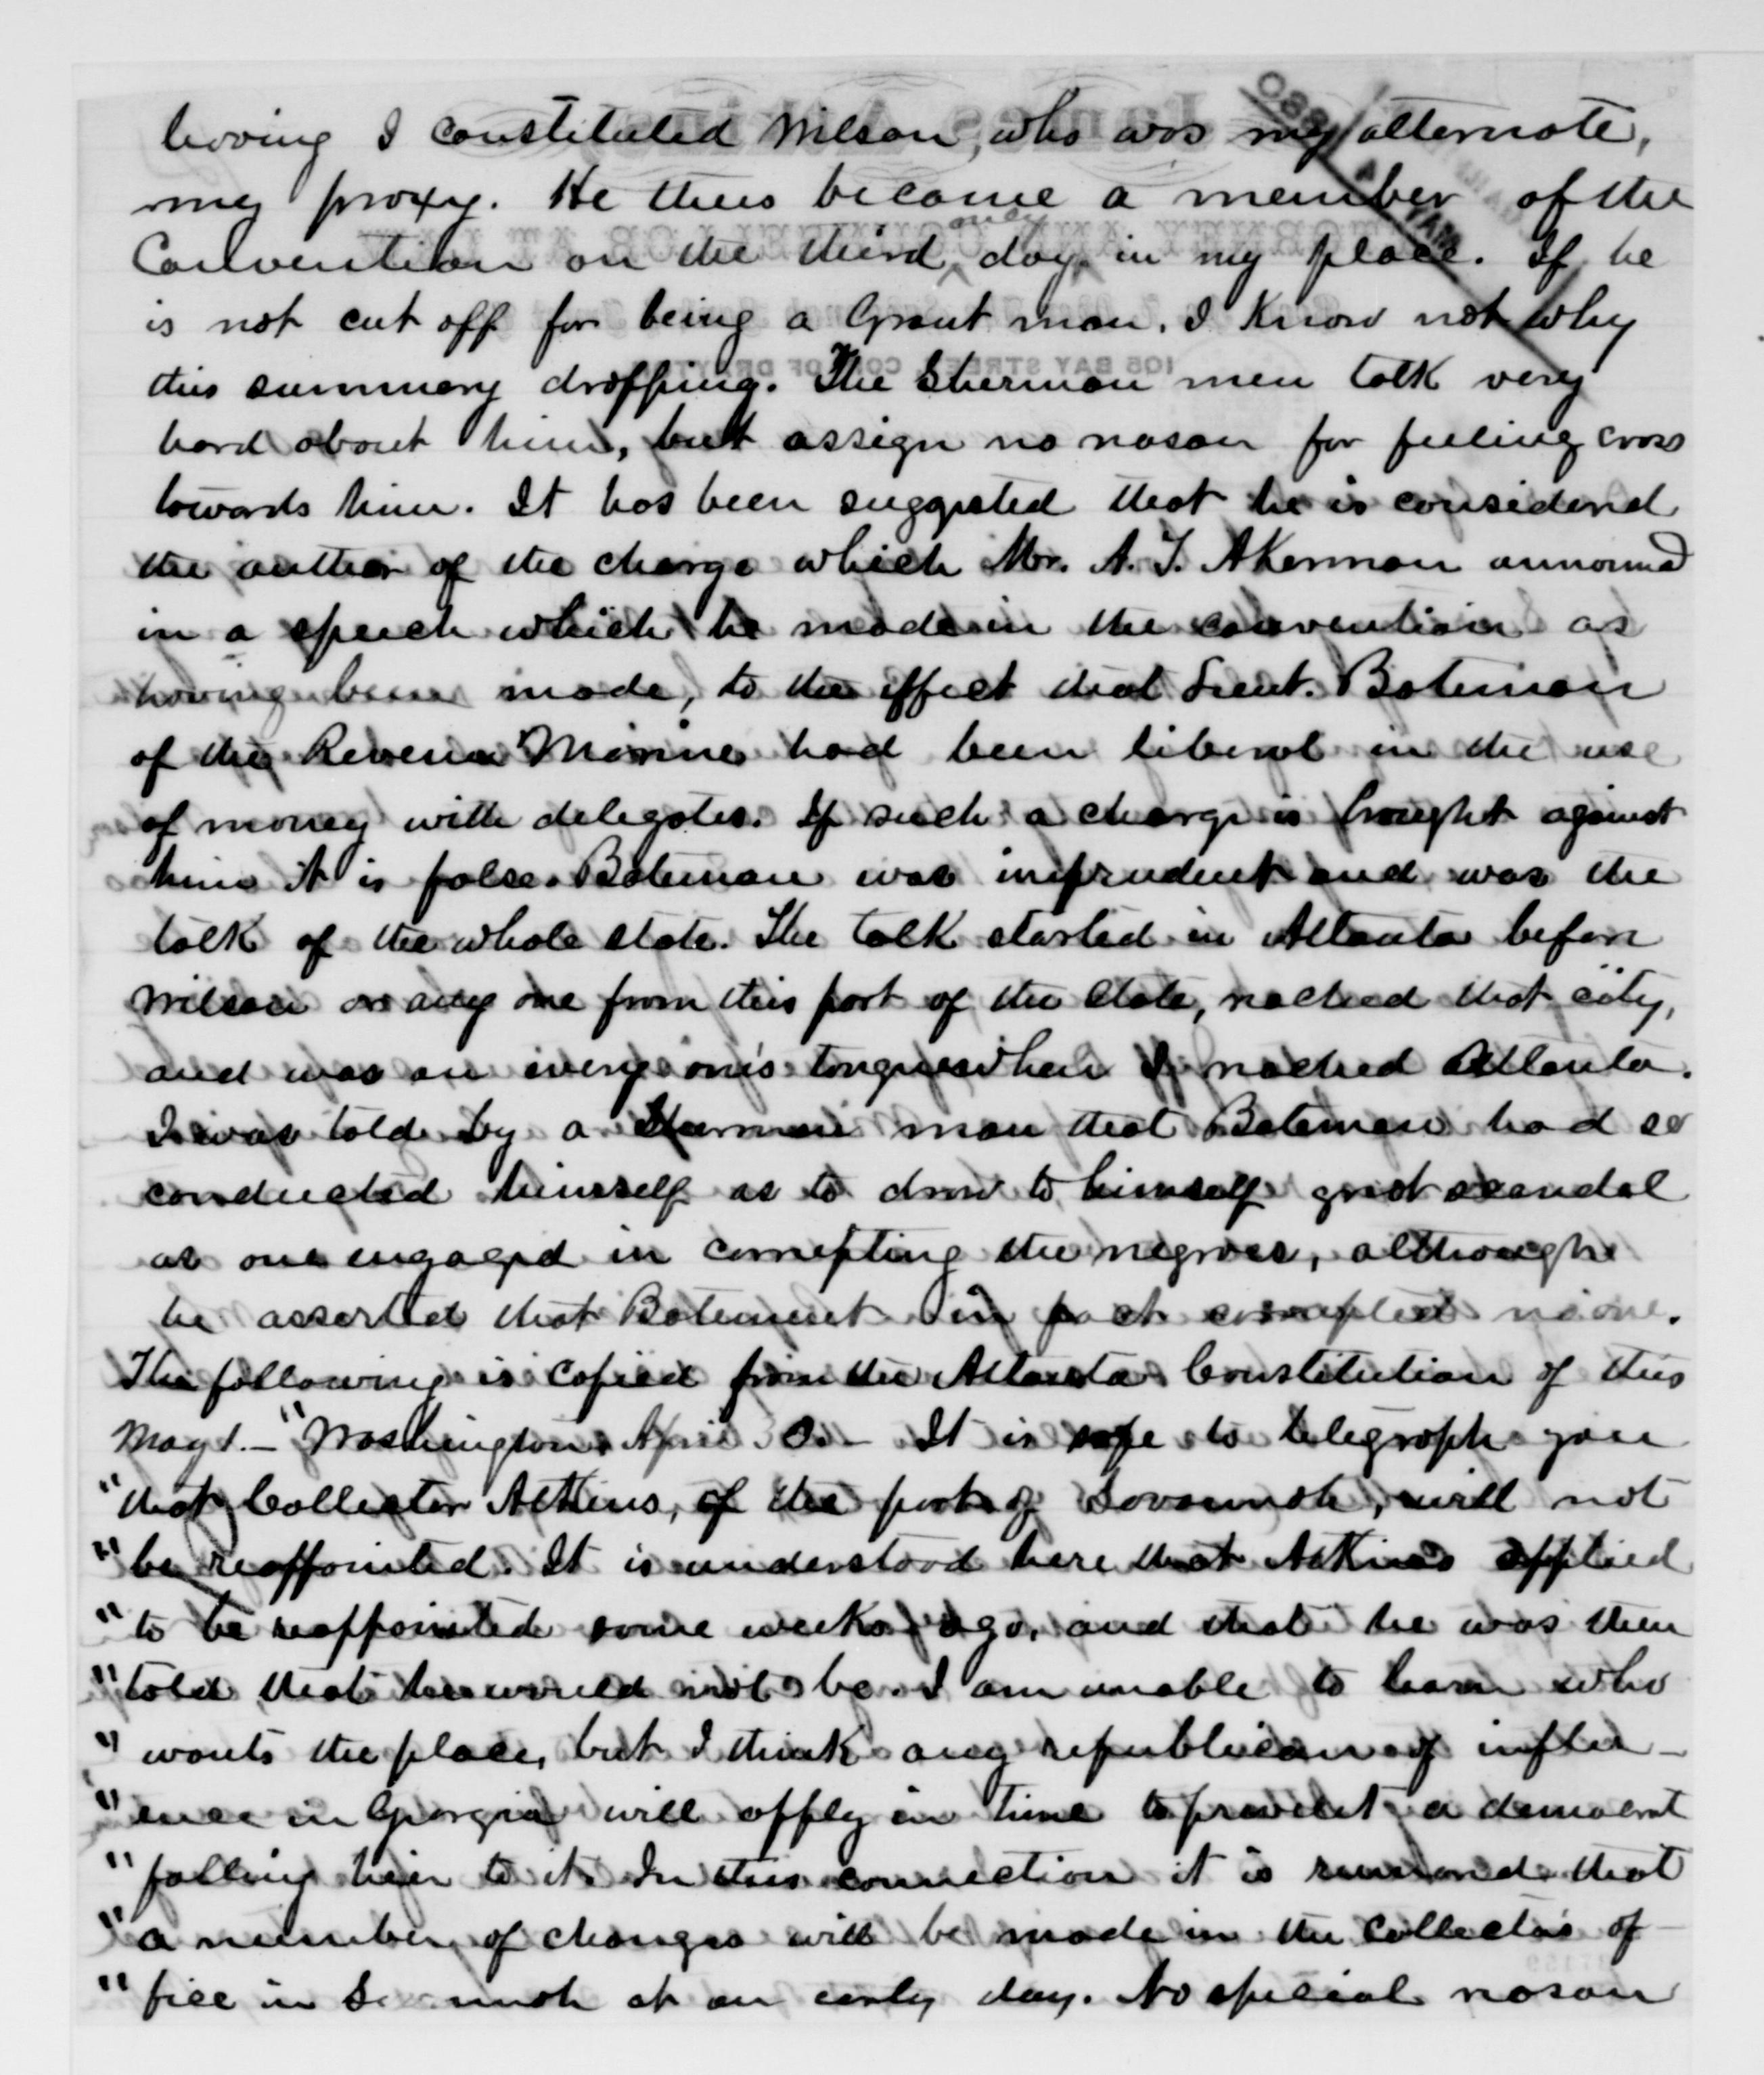 leaving I constituted Wilson, who was my alternate,
my proxy. He thus became a member of the
Convention on the third day only in my place. If he
is not cut off for being a Grant man, I know not why
this summary dropping. The Sherman men talk very
hard about him, but assign no reason for feeling cross
towards him. It has been suggested that he is considered
the author of the charge which Mr. A. T. Akerman announced
in a speech which he made in the convention as
having been made, to the effect that Lieut. Bateman
of the Revenue Marine had been liberal in the use
of money with delegates. If such a charge is brought against
him it is false. Bateman was imprudent and was the
talk of the whole state. The talk started in Atlanta before
Wilson or any one from this part of the state, reached that city,
and was on every one's tongue when I reached Atlanta.
I was told by a Sherman man that Bateman had so
conducted himself as to draw to himself great scandal
as one engaged in corrupting the negroes, although
he asserted that Bateman in fact corrupted no one.
The following is copied from the Atlanta Constitution of this
May 1. — "Washington, April 30. — It is safe to telegraph you
"that Collector Atkins, of the port of Savannah, will not
"be reappointed. It is understood here that Atkins applied
"to be reappointed some weeks ago, and that he was then
"told that he would not be. I am unable to learn who
"wants the place, but I think any republican of influ-
"ence in Georgia will apply in time to prevent a democrat
"falling heir to it. In this connection it is rumored that
"a number of changes will be made in the Collector's of-
"fice in Savannah at an early day. No special reason